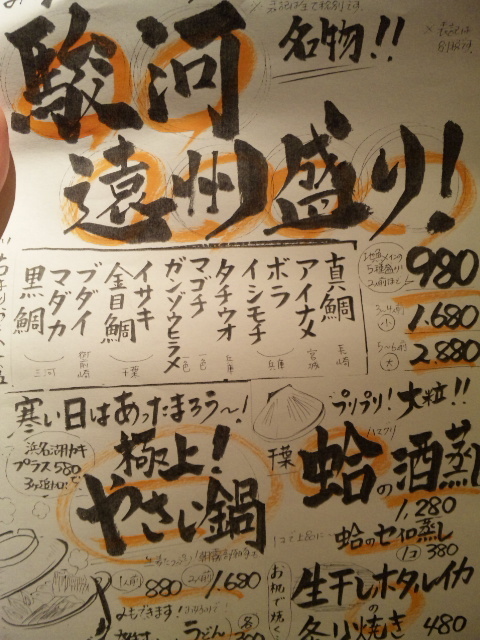 名物!!
駿河
遠州盛り!
980
1,680
2,880
真鯛
アイナメ
ボラ
イシモチ
タチウオ
マゴチ
ガンゾウヒラメ
イサキ
金目鯛
ブダイ
マダカ
黒鯛
長崎
宮城
兵庫
兵庫
一色
一色
千葉
御前崎
三河
寒い日はあったまろう~!
浜名湖カキ
プラス580
極上!
やさしい鍋
880
1,680
うどん
プリプリ! 大粒!!
千葉
蛤の酒蒸
1,280
蛤のセイロ蒸し
380
お机で焼く
生干しホタルイカの
炙り焼き 480